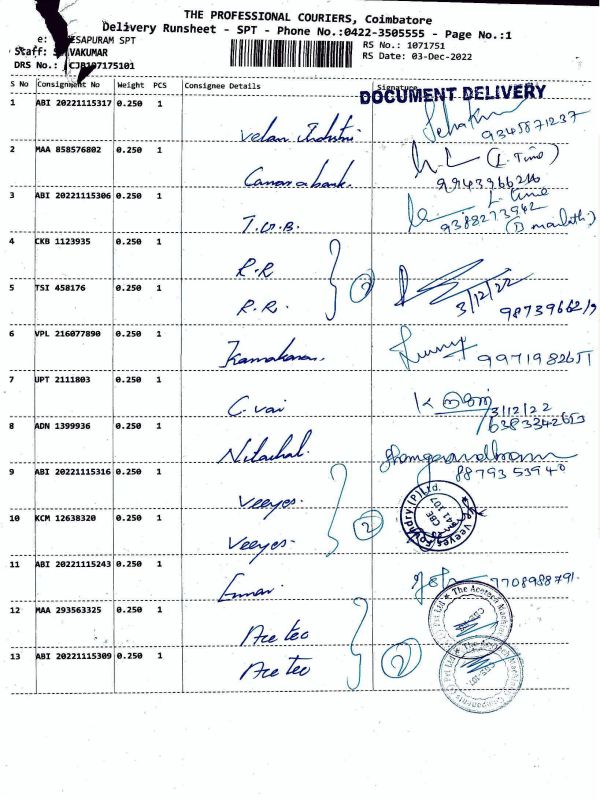 THE PROFESSIONAL COURIERS, Coimbatore
Delivery Runsheet - SPT - Phone No.:0422-3505555 - Page No.:1
e: ESAPURAM SPT
RS No.: 1071751
Staff: VAKUMAR
RS Date: 03-Dec-2022
DRS No.: CJB107175101
S No Consignment No Weight PCS Consignee Details Signature
DOCUMENT DELIVERY
1 ABI 20221115317 0.250 1
Velan Industri 9345871237
2 MAA 858576802 0.250 1
Canara bank. (L. Time)
3 ABI 20221115306 0.250 1
T.U.B. 9388273942
4 CKB 1123935 0.250 1
R.R
2
5 TSI 458176 0.250 1
R.R. 3/12/22
6 VPL 216077890 0.250 1
9971982651
7 UPT 2111803 0.250 1
C. vai 3/12/22
6383342653
8 ADN 1399936 0.250 1
8879353940
9 ABI 20221115316 0.250 1
Veeyes
2
10 KCM 12638320 0.250 1
Veeyes- Veeyes Foundry (P) Ltd. CBE 641 107
11 ABI 20221115243 0.250 1
7708988791.
12 MAA 293563325 0.250 1
Ace tec
2
13 ABI 20221115309 0.250 1
Ace tec